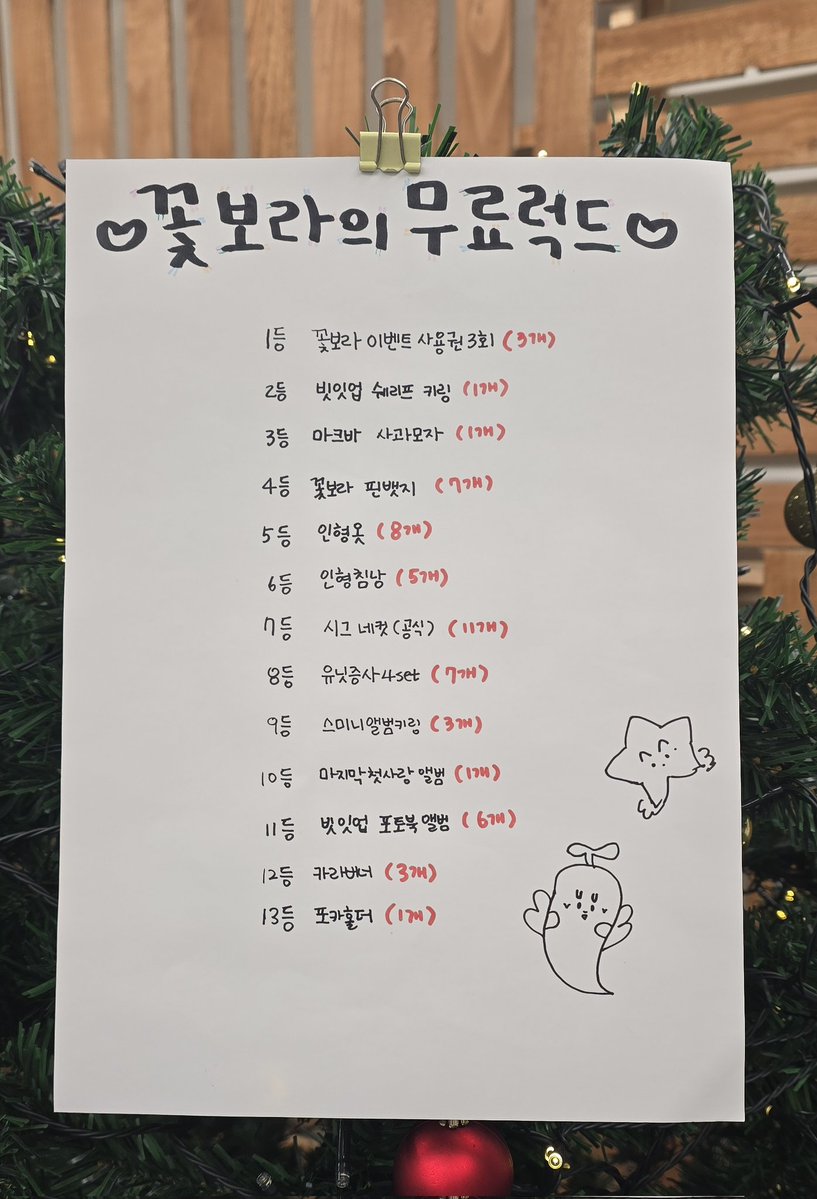 ♡꽃보라의 무료럭드♡
1등 꽃보라 이벤트 사용권 3회 (3개)
2등 빗잇업 쉐리프 키링 (1개)
3등 마크바 사과모자 (1개)
4등 꽃보라 핀뱃지 (7개)
5등 인형옷 (8개)
6등 인형침낭 (5개)
7등 시그 네컷(공식) (11개)
8등 유닛증사 4set (7개)
9등 스미니앨범키링 (3개)
10등 마지막첫사랑 앨범 (1개)
11등 빗잇업 포토북 앨범 (6개)
12등 카라비너 (3개)
13등 포카홀더 (1개)